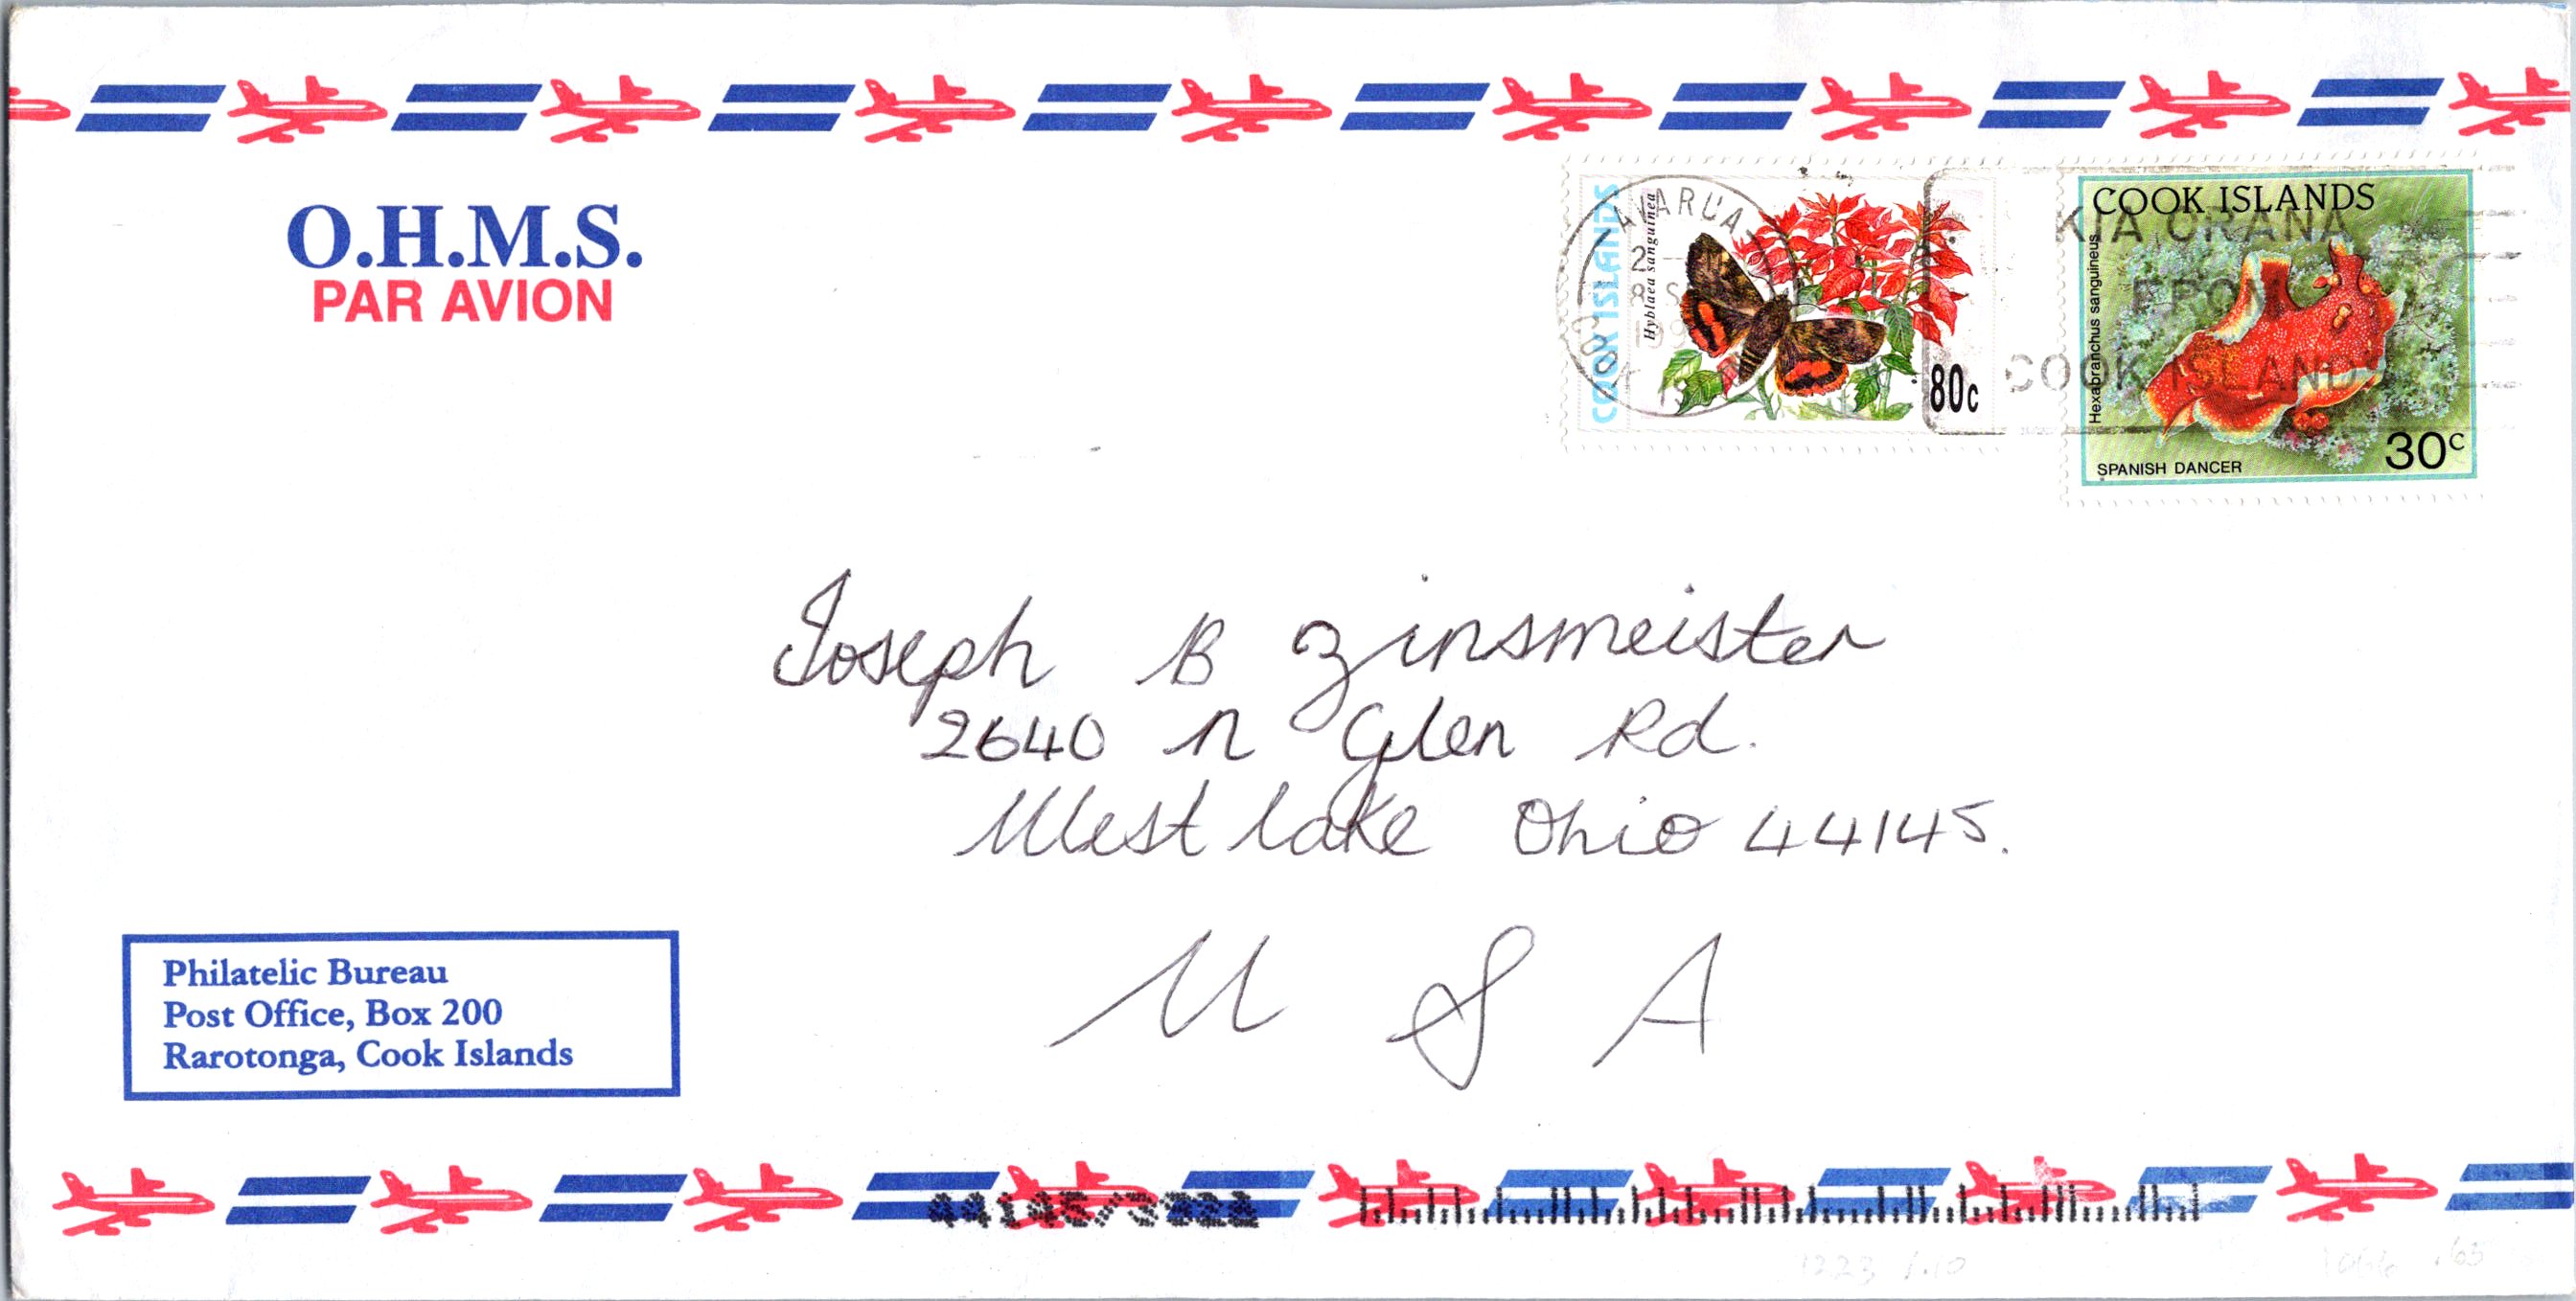 O.H.M.S.
PAR AVION
COOK ISLANDS
Hyblaea sanguinea
80c
AVARUA
COOK ISLANDS
Hexabranchus sanguineus
SPANISH DANCER
30c
KIA ORANA
FROM
COOK ISLANDS
Joseph B Zinsmeister
2640 N Glen Rd.
Westlake Ohio 44145.
U S A
Philatelic Bureau
Post Office, Box 200
Rarotonga, Cook Islands
1223 1.10